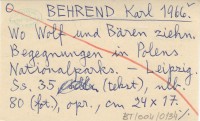 BEHREND Karl 1966.
Wo Wolf und Bären ziehn.
Begegnungen in Polens
Nationalparks. – Leipzig.
Ss. 35 (tekst), nlb.
80 (fot.), opr., cm 24 × 17.